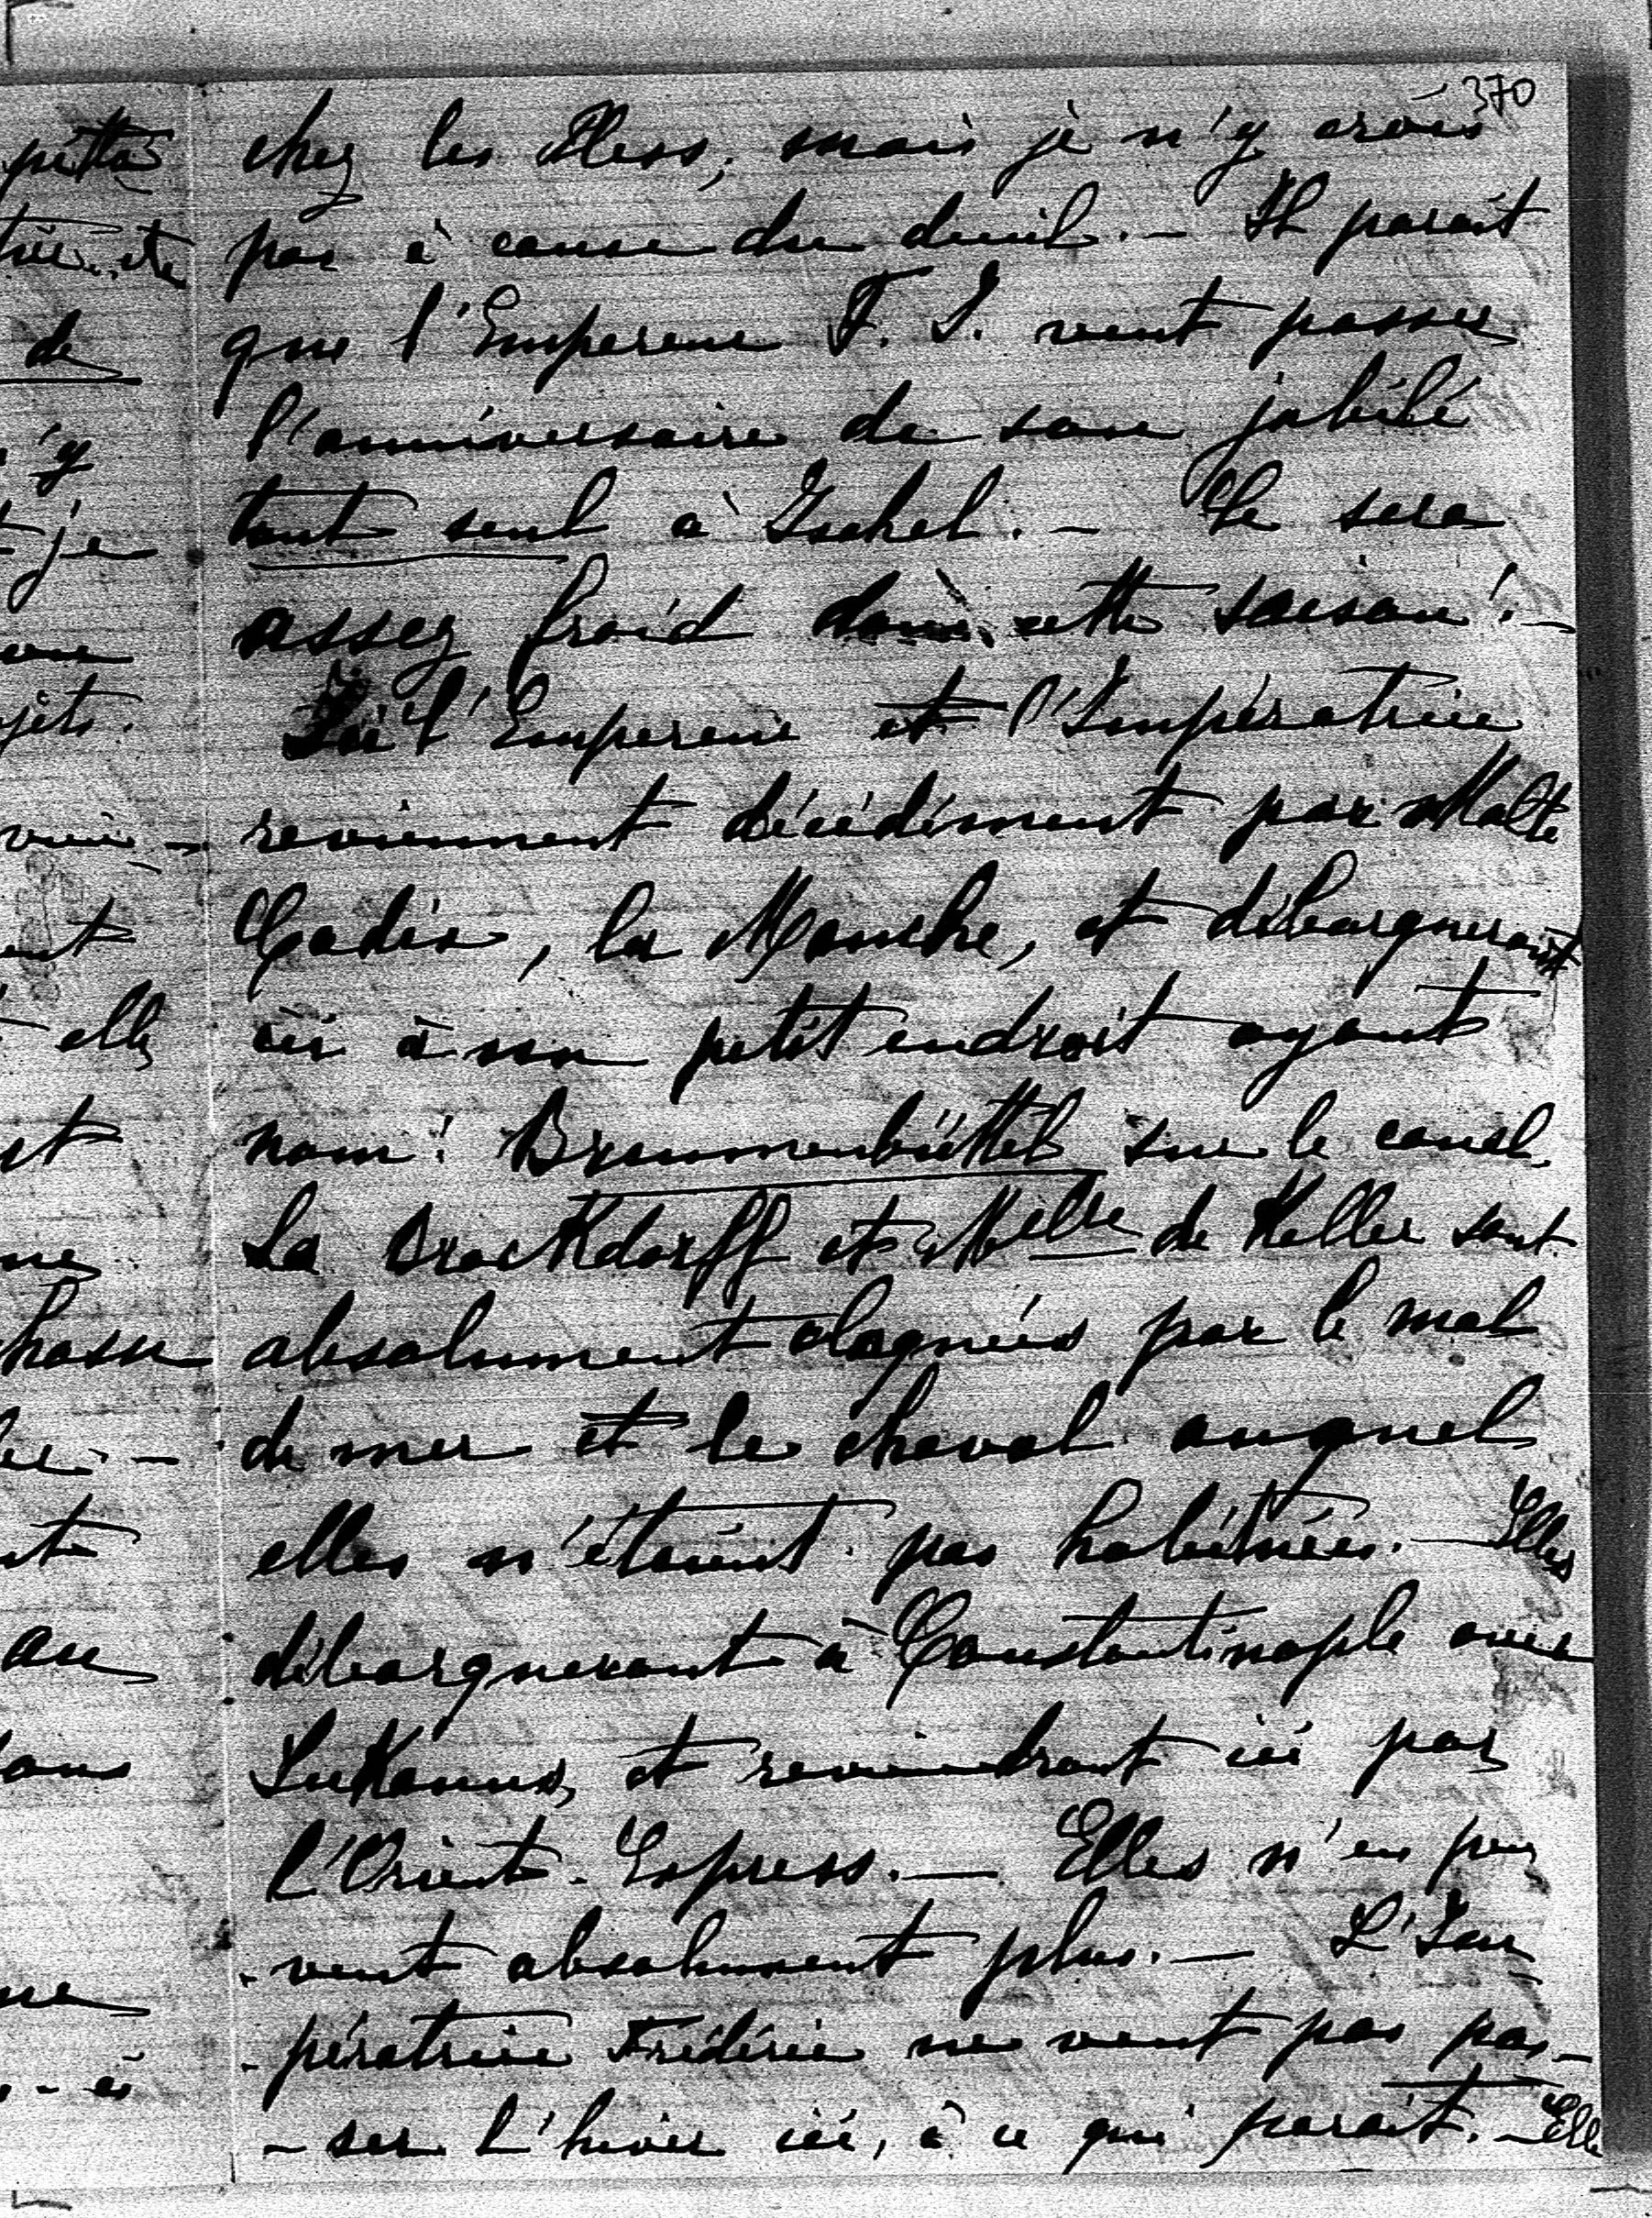 370
chez les Pless, mais je n'y crois
pas à cause du deuil. – Il paraît
que l'Empereur F. J. veut passer
l'anniversaire de son jubilé
tout seul à Ischel. – Ce sera
assez froid dans cette saison! –
Ici l'Empereur et l'Impératrice
reviennent décidément par Malte
Cadix, la Manche, et débarqueront
ici à un petit endroit ayant
nom: Brunnenbüttel sur le canal.
La Brockdorff et Melle de Keller sont
absolument par le mal
de mer et le cheval auquel
elles n'étaient pas habituées. – Elles
débarqueront à Constantinople avec
Lukanus, et reviendront ici par
l'Orient-Express. – Elles n'en peu
- vent absolument plus. – L'Im
- pératrice Frédéric ne veut pas pas –
– ser l'hiver ici, à ce qui paraît. – Elle
de
'y
je
elle
au